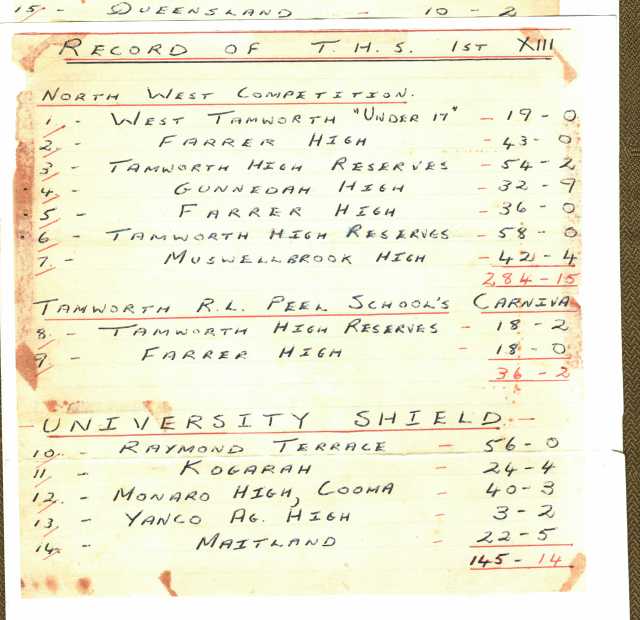 15 - QUEENSLAND - 10 - 2
RECORD OF T.H.S. 1ST XIII
NORTH WEST COMPETITION.
1. - WEST TAMWORTH "UNDER 17" - 19 - 0
2. - FARRER HIGH - 43 - 0
3. - TAMWORTH HIGH RESERVES - 54 - 2
4. - GUNNEDAH HIGH - 32 - 9
5 - FARRER HIGH - 36 - 0
6 - TAMWORTH HIGH RESERVES - 58 - 0
7. - MUSWELLBROOK HIGH - 42 - 4
284 - 15
TAMWORTH R.L. PEEL SCHOOL'S CARNIVA
8. - TAMWORTH HIGH RESERVES - 18 - 2
9 - FARRER HIGH - 18 - 0
36 - 2
UNIVERSITY SHIELD -
10. - RAYMOND TERRACE - 56 - 0
11. - KOGARAH - 24 - 4
12. - MONARO HIGH, COOMA - 40 - 3
13. - YANCO AG. HIGH - 3 - 2
14. - MAITLAND - 22 - 5
145 - 14